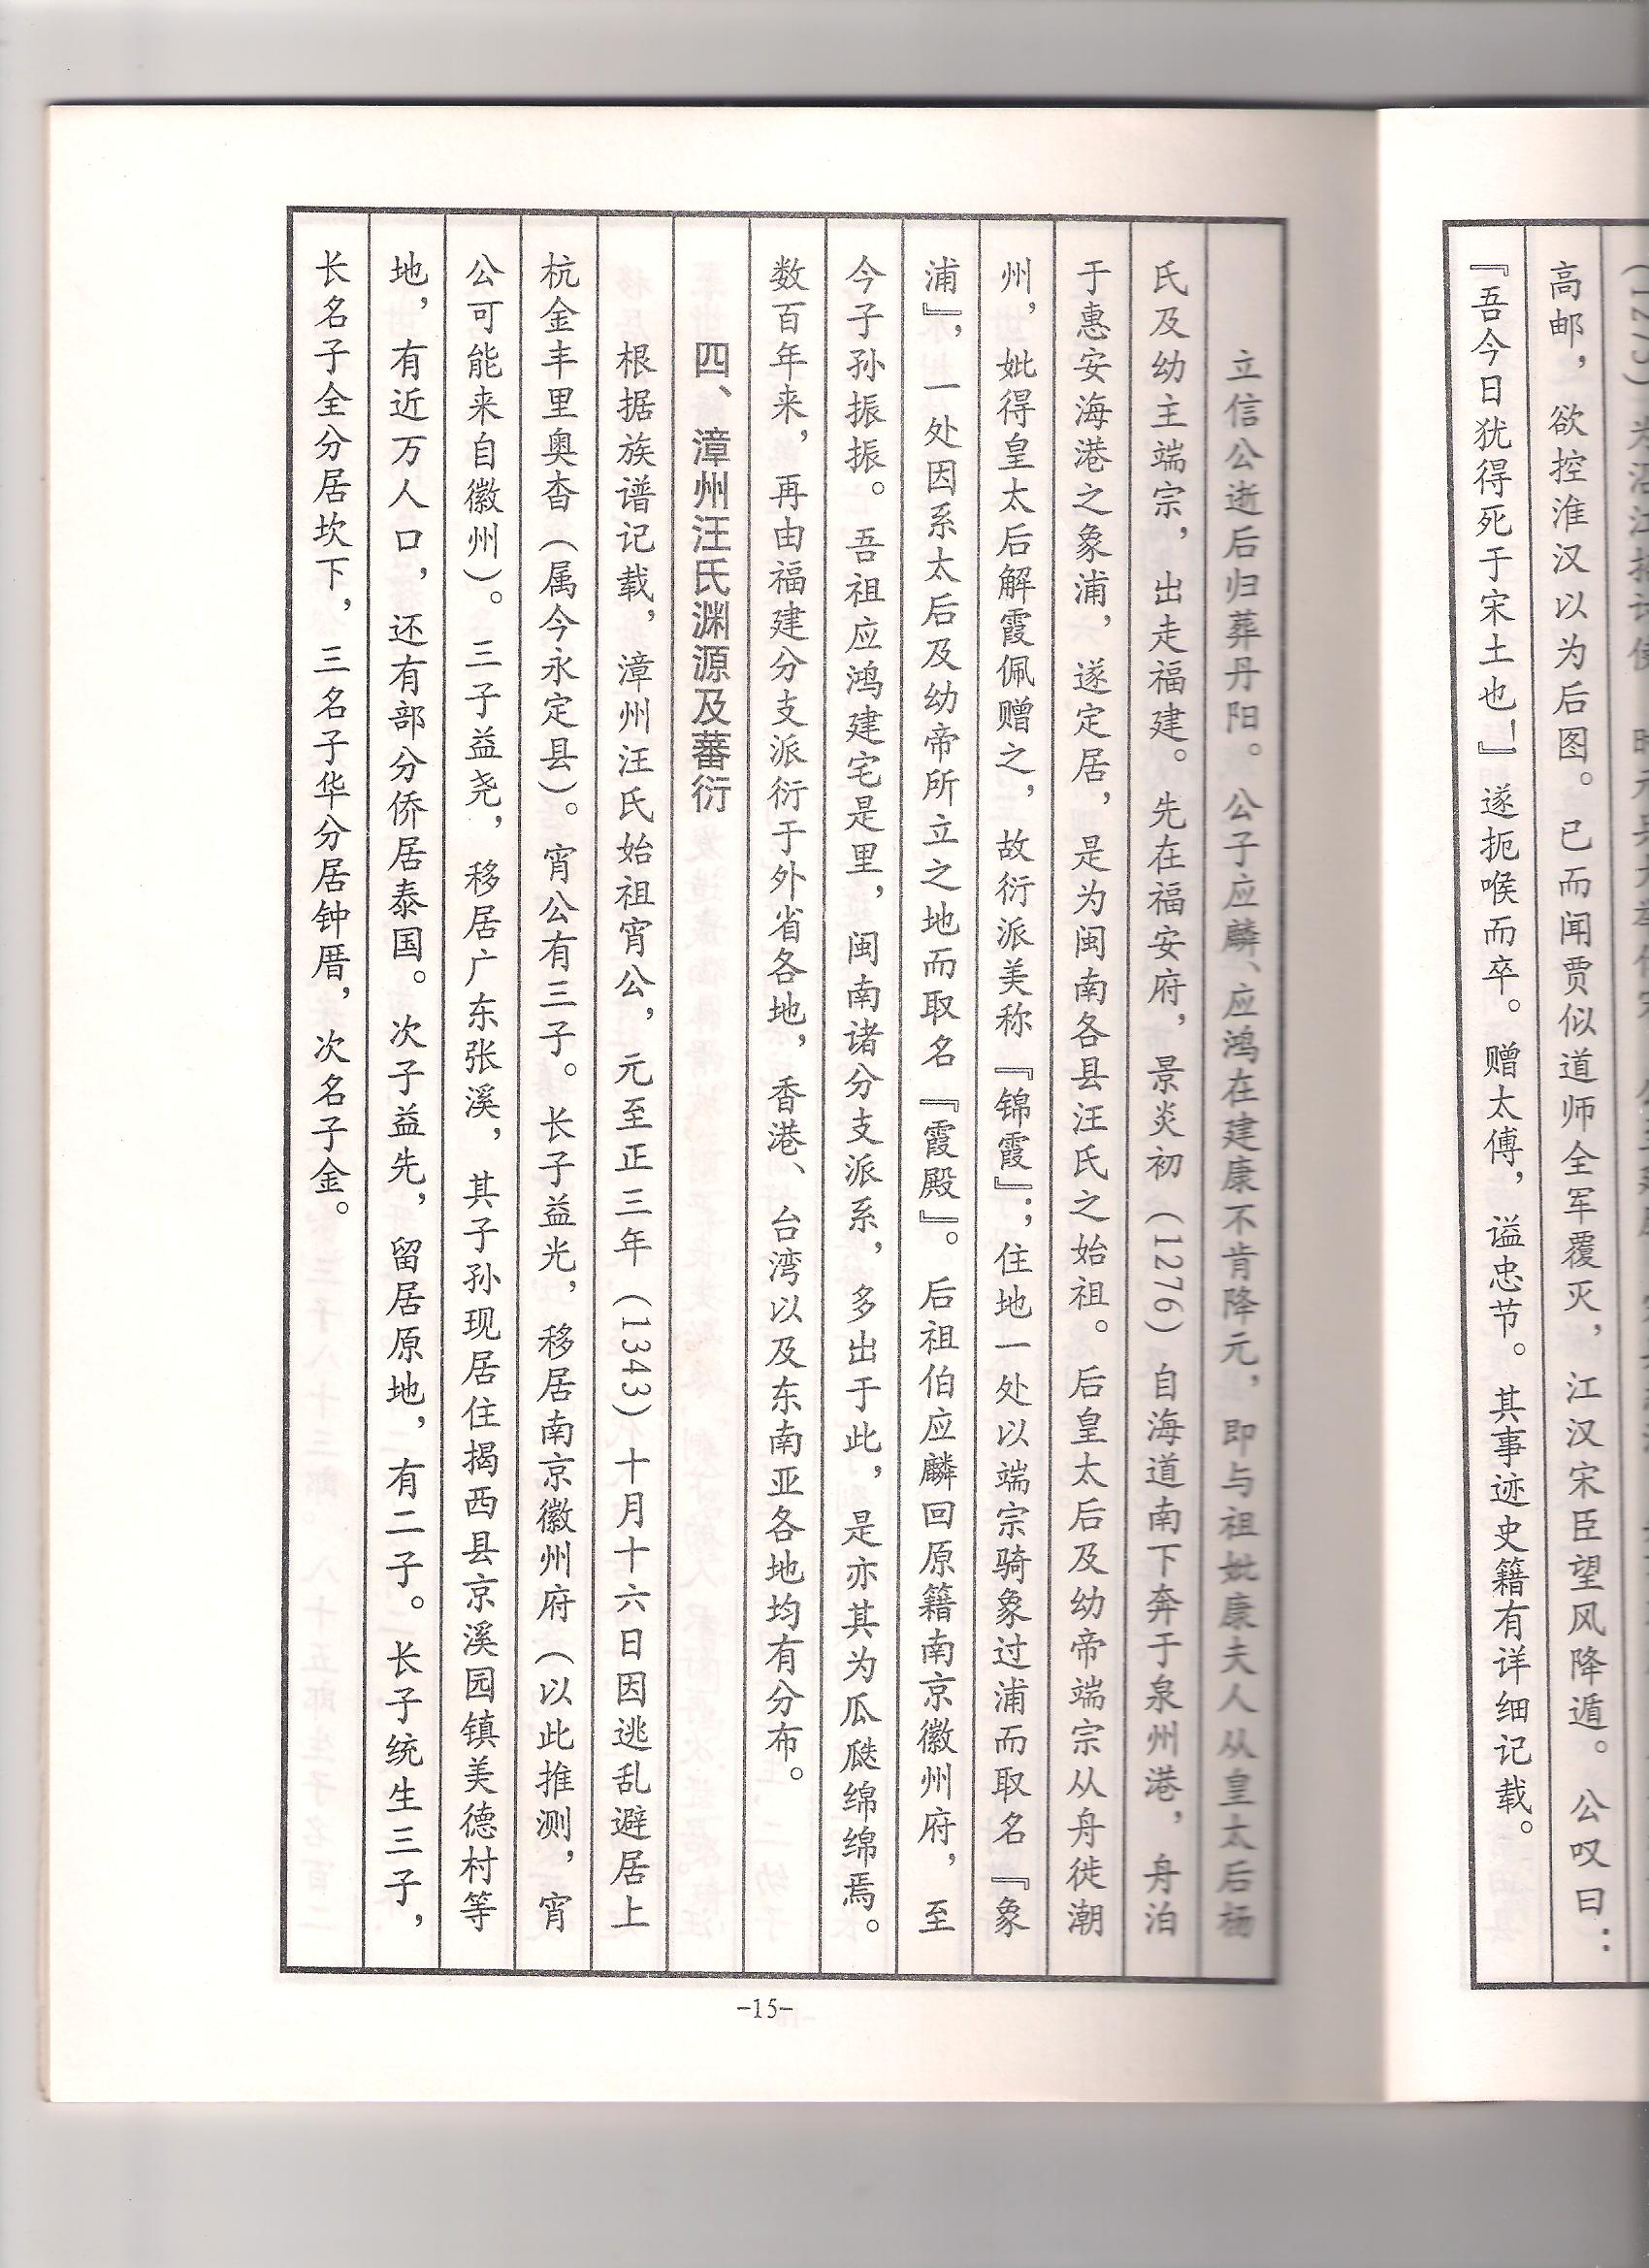 高邮，欲控淮汉以为后图。已而闻贾似道师全军覆灭，江汉宋臣望风降遁。公叹曰：
『吾今日犹得死于宋土也！』遂扼喉而卒。赠太傅，谥忠节。其事迹史籍有详细记载。
立信公逝后归葬丹阳。公子应麟、应鸿在建康不肯降元，即与祖妣康夫人从皇太后杨
氏及幼主端宗，出走福建。先在福安府，景炎初（1276）自海道南下奔于泉州港，舟泊
于惠安海港之象浦，遂定居，是为闽南各县汪氏之始祖。后皇太后及幼帝端宗从舟徙潮
州，妣得皇太后解霞佩赠之，故衍派美称『锦霞』；住地一处以端宗骑象过浦而取名『象
浦』，一处因系太后及幼帝所立之地而取名『霞殿』。后祖伯应麟回原籍南京徽州府，至
今子孙振振。吾祖应鸿建宅是里，闽南诸分支派系，多出于此，是亦其为瓜瓞绵绵焉。
数百年来，再由福建分支派衍于外省各地，香港、台湾以及东南亚各地均有分布。
四、漳州汪氏渊源及蕃衍
根据族谱记载，漳州汪氏始祖宵公，元至正三年（1343）十月十六日因逃乱避居上
杭金丰里奥杳（属今永定县）。宵公有三子。长子益光，移居南京徽州府（以此推测，宵
公可能来自徽州）。三子益尧，移居广东张溪，其子孙现居住揭西县京溪园镇美德村等
地，有近万人口，还有部分侨居泰国。次子益先，留居原地，有二子。长子统生三子，
长名子全分居坎下，三名子华分居钟厝，次名子金。
-15-